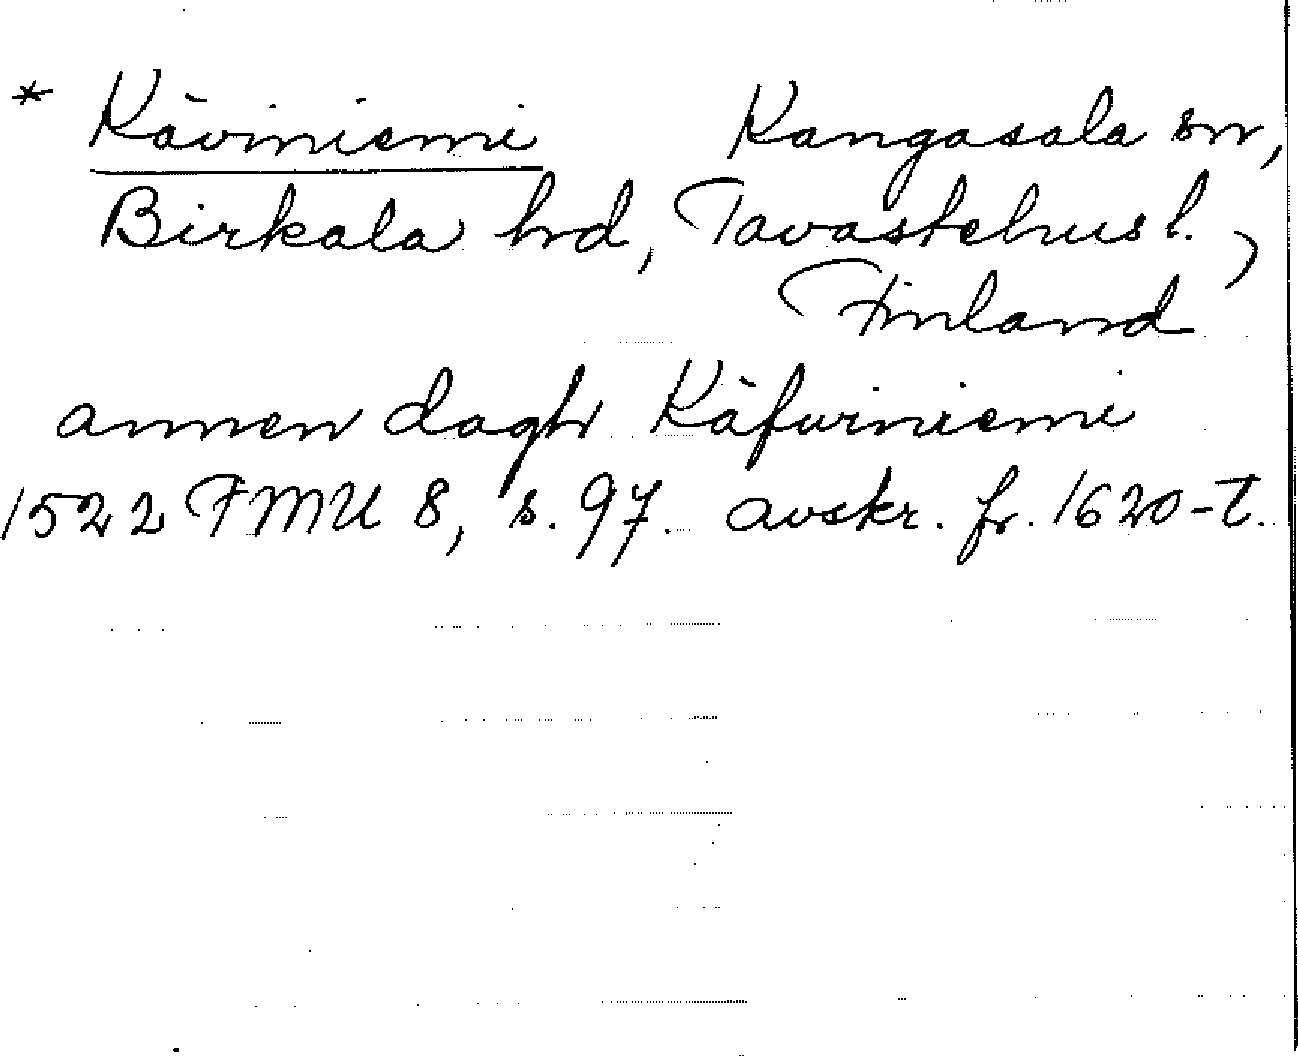 * Käviniemi Kangasala sn,
Birkala hd, Tavastehus l.,
Finland
annen dagh Käfwiniemi
1522 FMU 8, s. 97. avskr. fr. 1620-t.